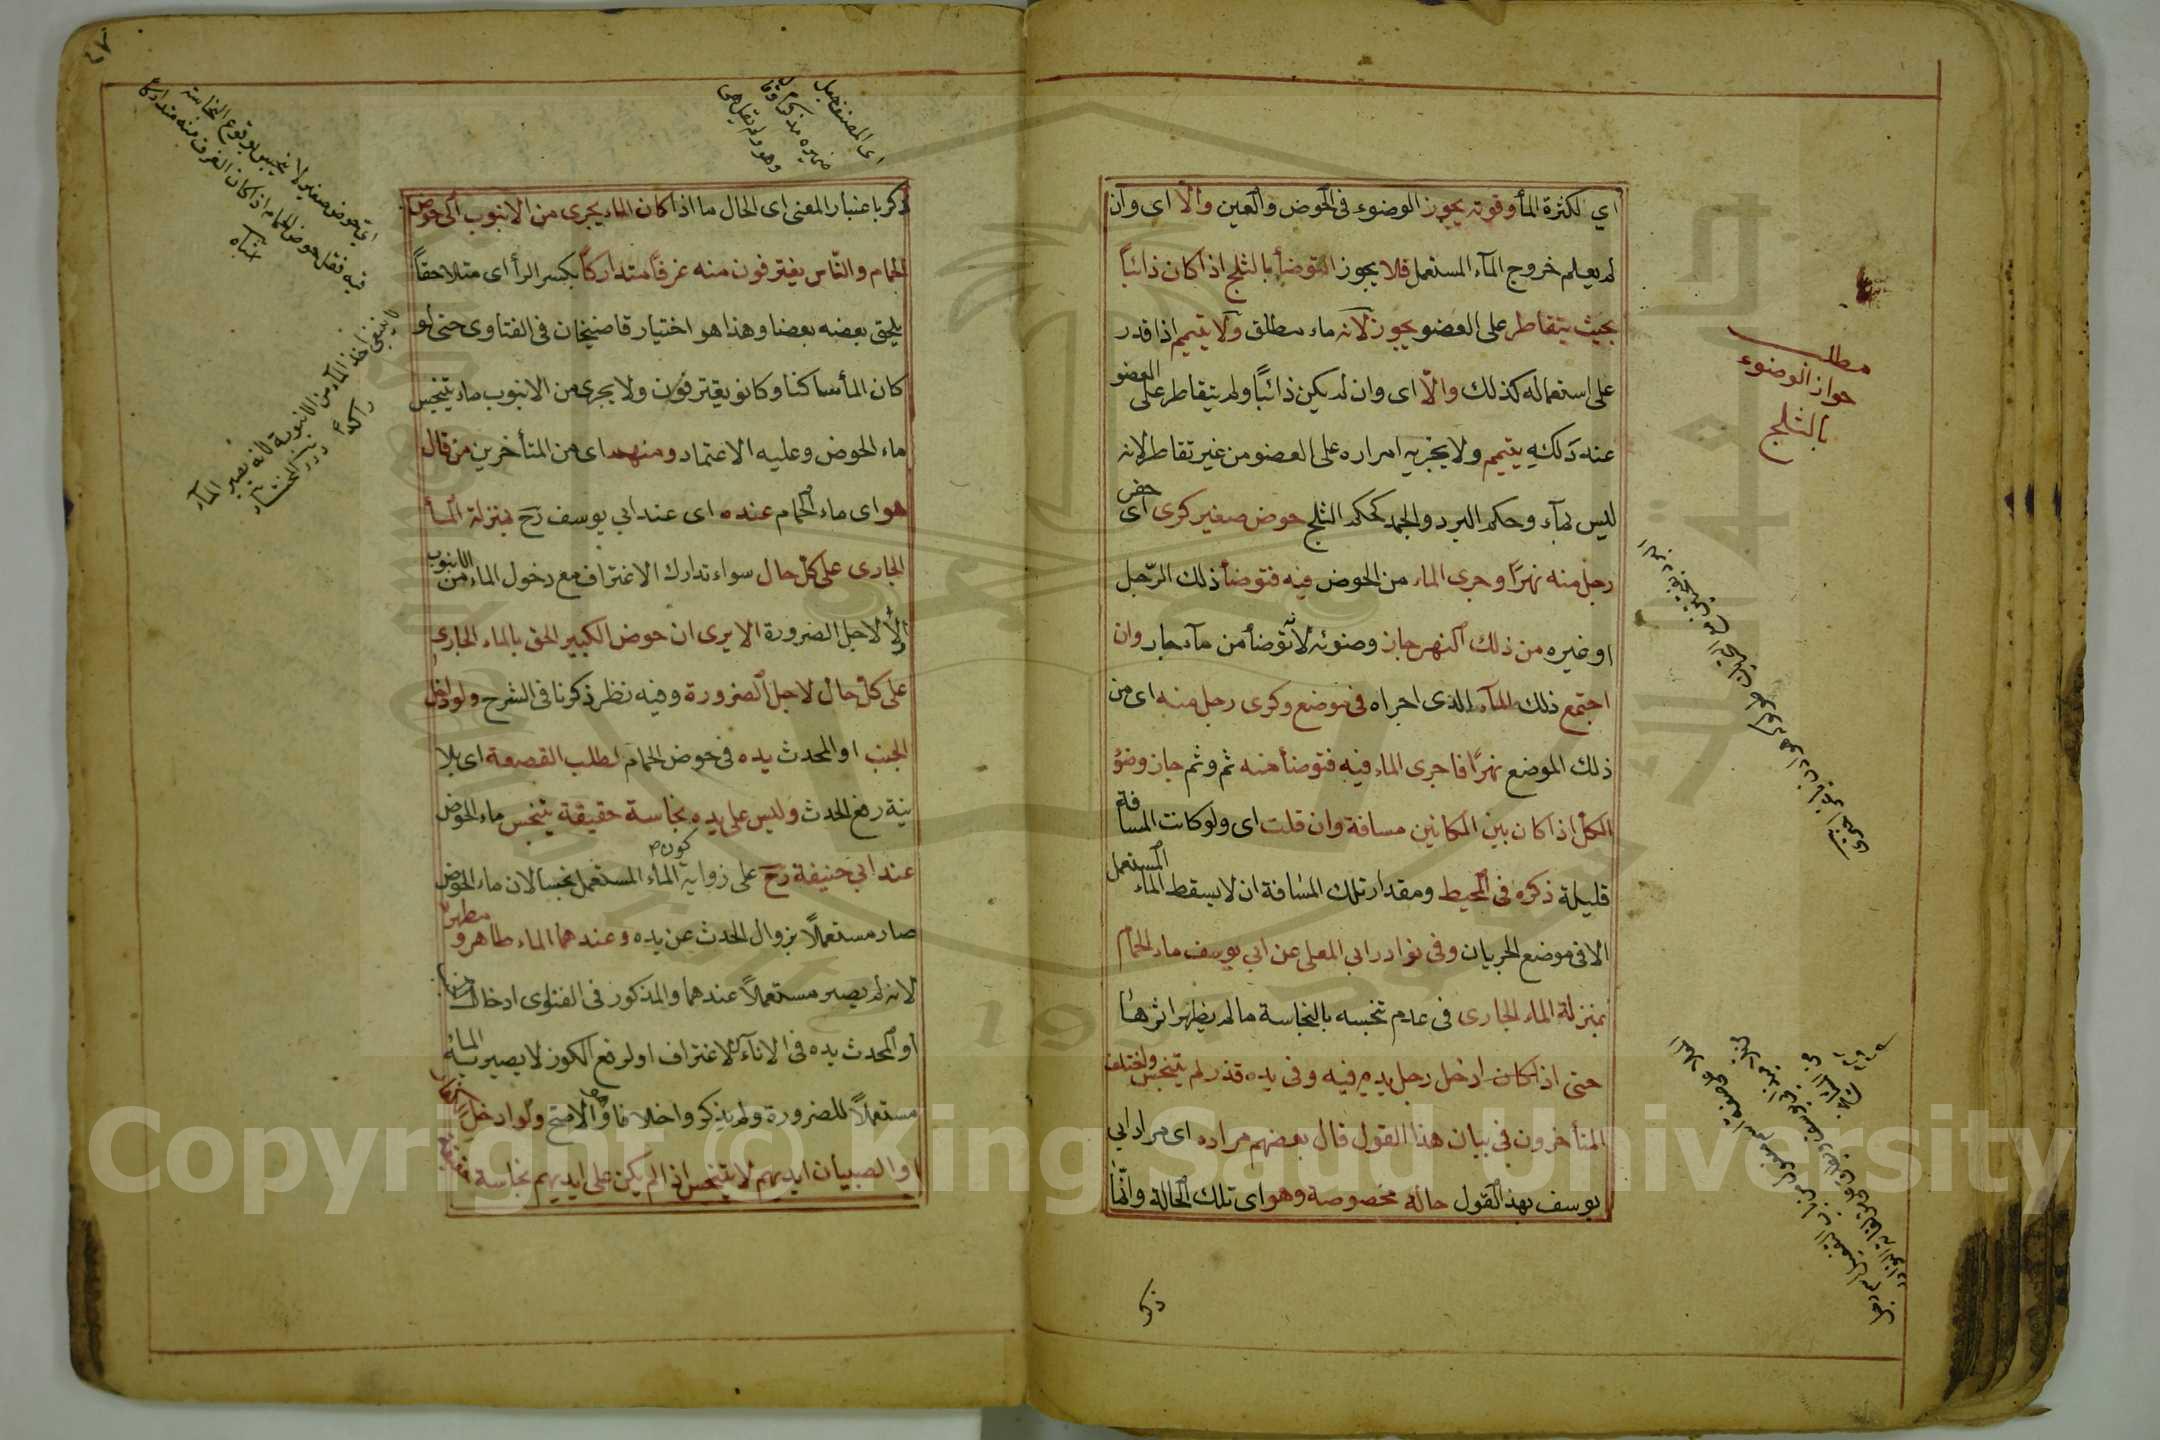 اي لكثرة الماء وقوته يجوز الوضوء في الحوض والعين والا اى وان
لم يعلم خروج الماء المستعمل فلا يجوز التوضأ بالثلج اذا كان ذائبًا
بحيث يتقاطر على العضو يجوز لانه ماء مطلق ولا يتيمم اذا قدر
على استعماله كذلك والّا اى وان لم يكن ذائبًا ولم يتقاطر على العضو
عند ذلك يتيمم ولا يجزيه امراره على العضو من غير تقاطر لانه
ليس بماء وحكم البرد والجمد كحكم الثلج حوض صغير كرى اى حفر
رجل منه نهرًا وجرى الماء من الحوض فيه فتوضأ ذلك الرّجل
او غيره من ذلك النهر جاز وضوئه لانه توضأ من ماء جار وان
اجتمع ذلك الماء الذى اجراه فى موضع وكرى رجل منه اى من
ذلك الموضع نهرًا فاجرى الماء فيه فتوضأ منه ثم وثم جاز وضؤ
الكل اذا كان بين المكانين مسافة وان قلت اى ولو كانت المسافة
قليلة ذكره فى المحيط ومقدار تلك المسافة ان لا يسقط الماء المستعمل
الا فى موضع الجريان وفى نوادر ابى المعلى عن ابى يوسف ماء الحمام
بمنزلة الماء الجارى فى عدم تنجسه بالنجاسة ما لم يظهر اثرها
حتى اذا كان ادخل رجل يده فيه وفى يده قذر لم يتنجس واختلف
المتأخرون فى بيان هذا القول قال بعضهم مراده اى مراد ابى
يوسف بهذ القول حالة مخصوصة وهو اى تلك الحالة وانّما
ذكر
مطلب
جواز الوضوء
بالثلج
ذكر باعتبار المعنى اى الحال ما اذا كان الماء يجرى من الانبوب الى حوض
الحمام والنّاس يغترفون منه غرفًا متداركًا بكسر الرأ اى متلاحقًا
يلحق بعضه بعضا وهذا هو اختيار قاضيخان فى الفتاوى حتى لو
كان الماء ساكنا وكانو يغترفون ولا يجرى من الانبوب ماء يتنجس
ماء الحوض وعليه الاعتماد ومنهم اى من المتأخرين من قال
هو اى ماء الحمام عنده اى عند ابى يوسف رَحَ بمنزلة الماء
الجارى على كل حال سواء تدارك الاغتراف مع دخول الماء من الانبوب
اولا لاجل الضرورة الا يرى ان حوض الكبير الحق بالماء الجارى
على كل حال لاجل الضرورة وفيه نظر ذكرنا فى الشرح ولو ادخل
الجنب او المحدث يده فى حوض الحمام لطلب القصعة اى بلا
نية رفع الحدث وليس على يده نجاسة حقيقة يتنجس ماء الحوض
عند ابى حنيفة رَحَ على رواية كون الماء المستعمل نجسا لان ماء الحوض
صار مستعملاً بزوال الحدث عن يده وعندهما الماء طاهر ومطهر
لانه لم يصير مستعملاً عندهما والمذكور فى الفتاوى ادخال
او المحدث يده فى الاناء للاغتراف او لرفع الكوز لا يصير الماء
مستعملاً للضرورة ولم يذكروا خلافا والاصح ولو ادخل الكفار
او الصبيان ايديهم لا يتنجس اذا لم يكن على ايديهم نجاسة حقيقة
اى المصنف جعل
ضميره مذكرا
وهو ولم يقل هى
اى حوض صغير لا ينجس بوقوع النجاسة
فيه فقل حوض الحمام اذا كان الغرف منه متداركا
اشباه
لا ينبغى اخذ الماء من الانبوبة لانه يصير الماء
راكدا